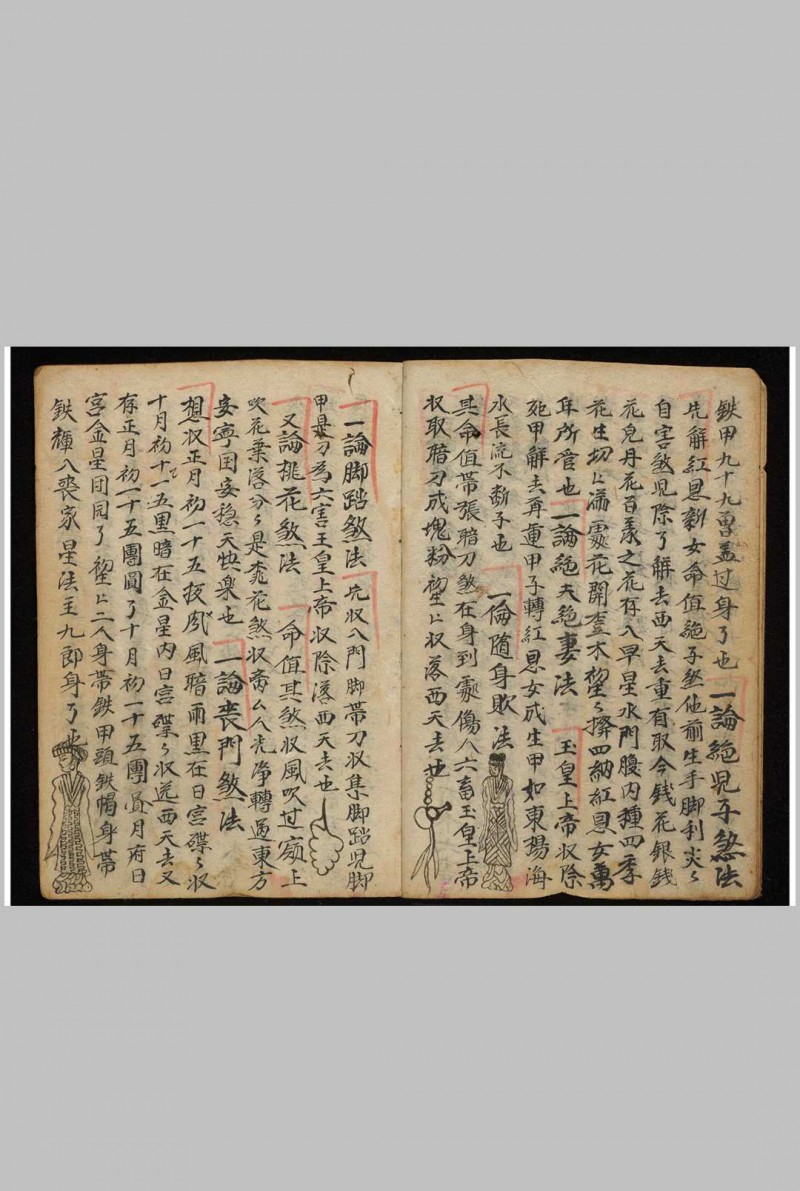 鉄甲九十九曽盖过身了也 一論絶児子煞法
先解紅恩新女命值絶子煞他前生手脚利炎〻
自害煞児除了解去西天去重有取今銭花銀銭
花皃丹花百㨾之花存入早星水門腹内種四季
花生切上满霡花開壹木望〻擠四納紅恩女萬
年所管也 一論絶夫絶妻法 玉皇上帝収除
死甲解去再運甲子轉紅恩女成生甲如東揚海
水長流不断子也 一倫随身敗法
其命值带張暗刀煞在身到處傷人六畜玉皇上帝
収取暗刀成塊粉望上収落西天去也
一論脚踏煞法 先収八門脚带刀収集脚踏児脚
甲是刀為六害玉皇上帝収除落西天去也
又論桃花煞法 命值其煞収風吹过嶺上
吹花葉落分〻是桃花煞収斋么人先净轉過東方
安寧囯安稳天快楽也 一論丧門煞法
想収正月初一十五夜风風暗雨黒在日宫碟〻収
十月初十一五黒暗在金星内日宫碟〻収送西天去又
存正月初一十五團圓了十月初一十五團圓月府日
宫金星团园了望上二人身带鉄甲頭鉄帽身带
鉄輝入丧家星法主九郎身了也